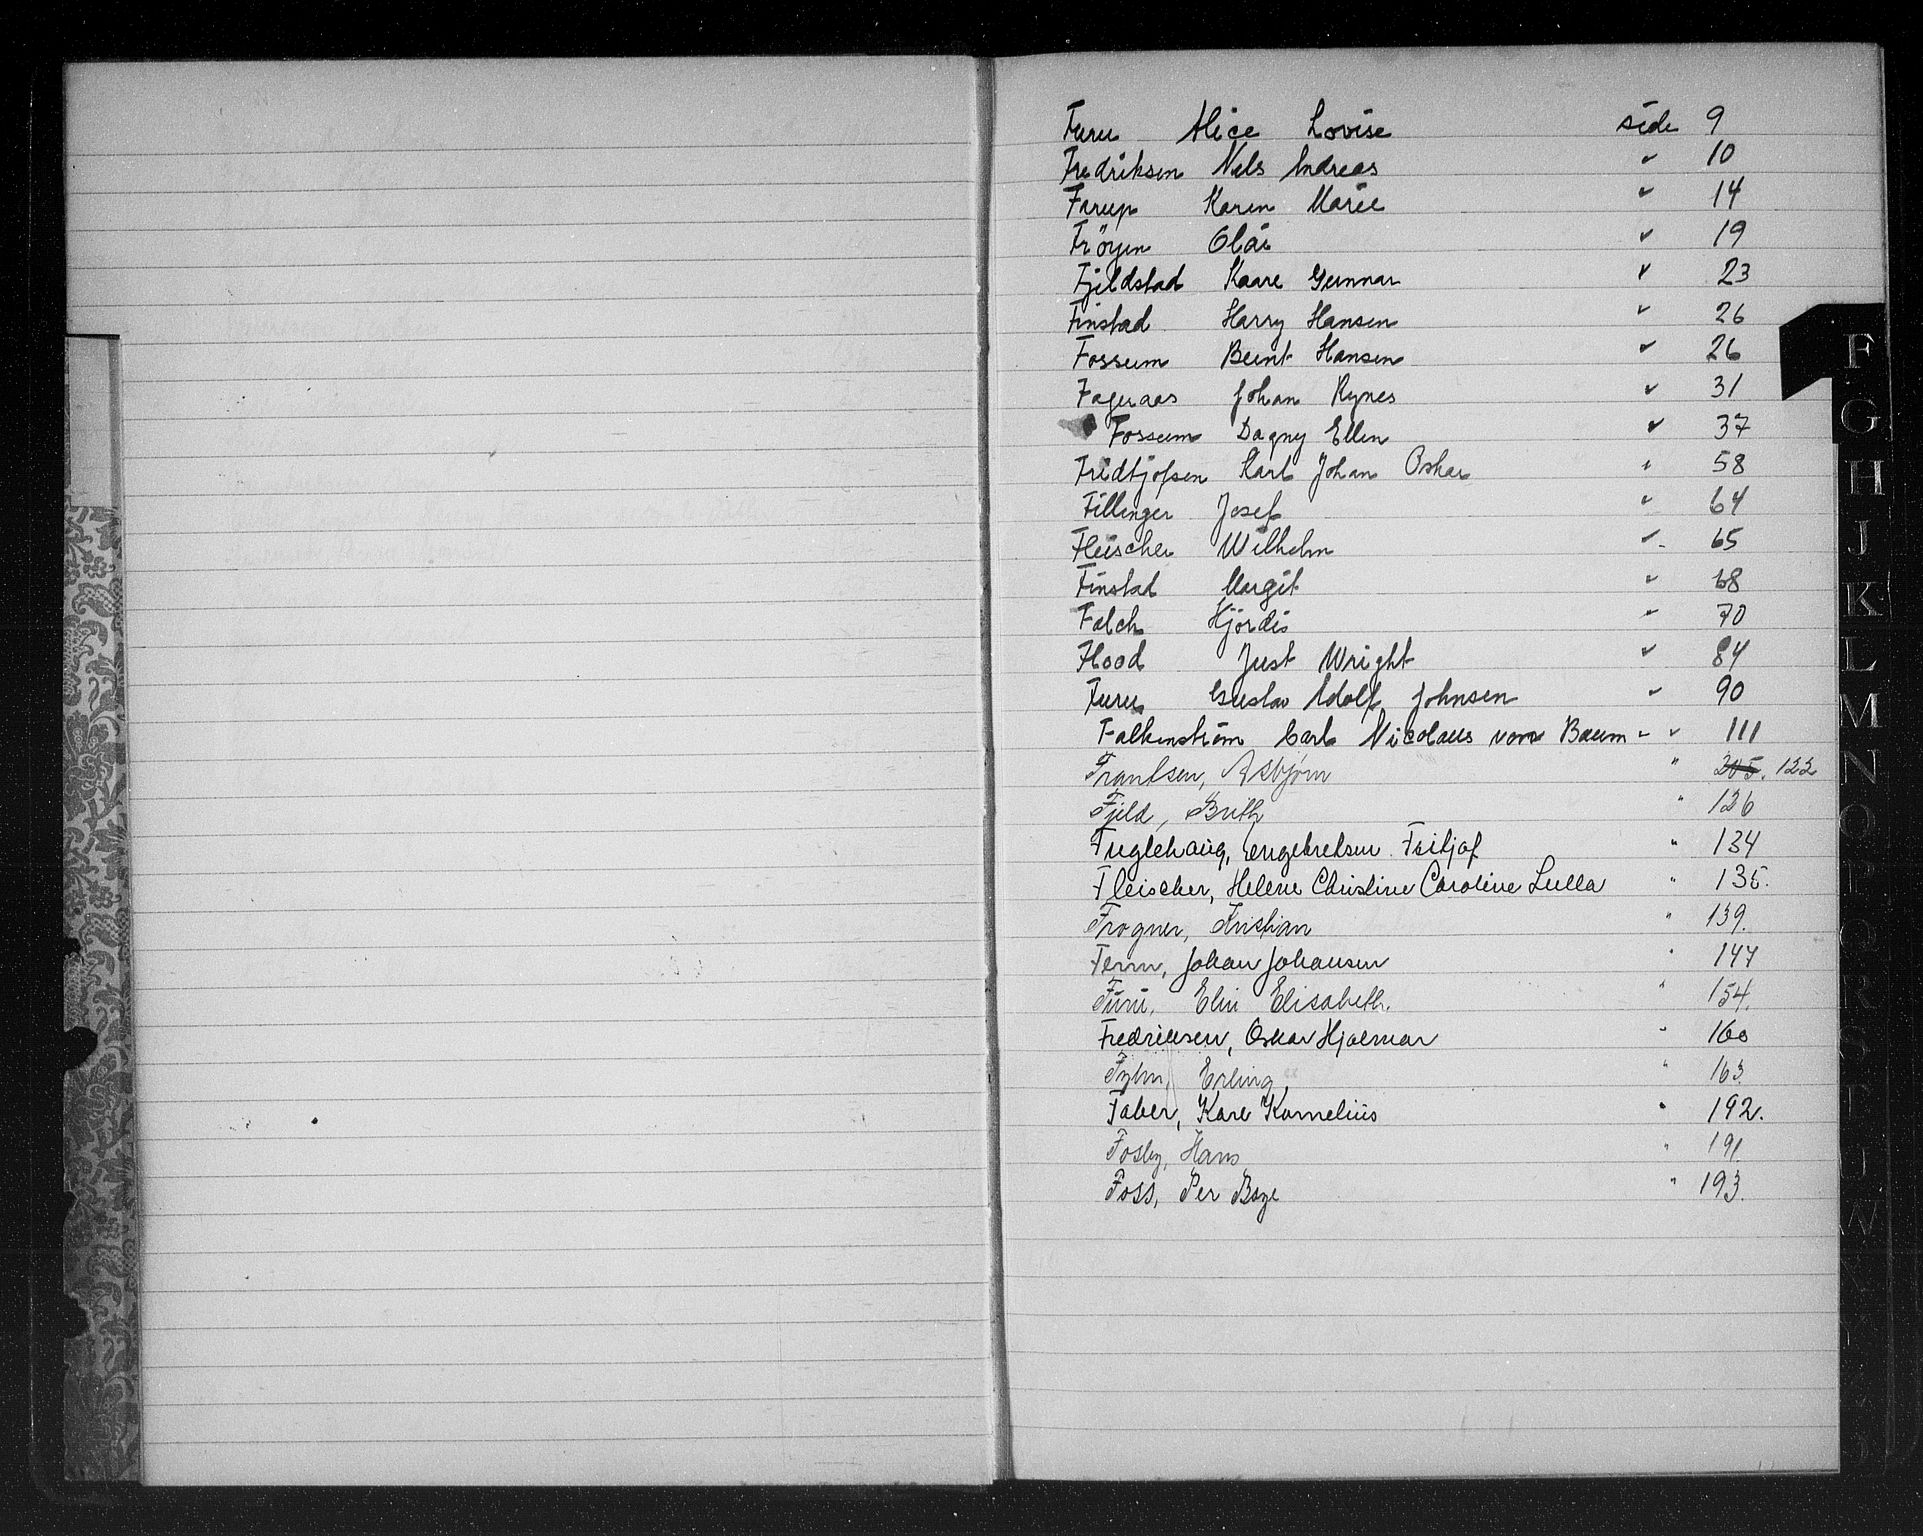 Furu Alice Lovise side 9
Fredriksen Nils Andreas " 10
Farup Karen Marie " 14
Fröyen Olai " 19
Fjeldstad Kaare Gunnar " 23
Finstad Harry Hansen " 26
Fossum Bernt Hansen " 26
Fageraas Johan Rynes " 31
Fossum Dagny Ellen " 37
Fridtjofsen Karl Johan Oskar " 58
Fillinger Josef " 64
Fleischer Wilhelm " 65
Finstad Margit " 68
Falch Hjördis " 70
Flood Just Wright " 84
Furu Gustav Adolf Johnsen " 90
Falkenström Carl Nicolaus von Baum - " 111
Frantsen, Asbjørn " 205. 122
Fjeld, Brith " 126
Fuglehaug, Engebretsen Fritjof " 134
Fleischer, Helene Christine Caroline Lulla " 135.
Frogner, Kristian " 139.
Ferm, Johan Johansen " 147
Furu, Elin Elisabeth. " 154.
Fredriksen, Oskar Hjalmar " 160
Erling, " 163.
Faber, Kare Kornelius " 192.
Fosby, Hans " 191.
Foss, Per Boye " 193.
F
G
H
J
K
L
M
N
O
P
Q
R
S
T
U
W